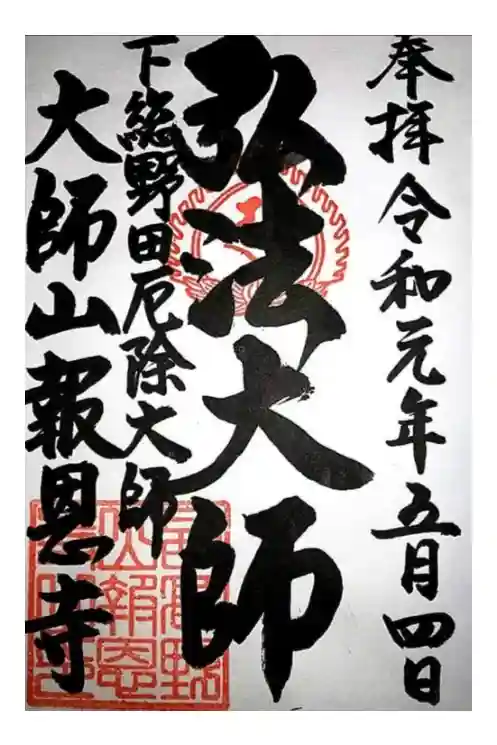 奉拝令和元年五月四日
弘法大師
下総野田厄除大師
大師山報恩寺